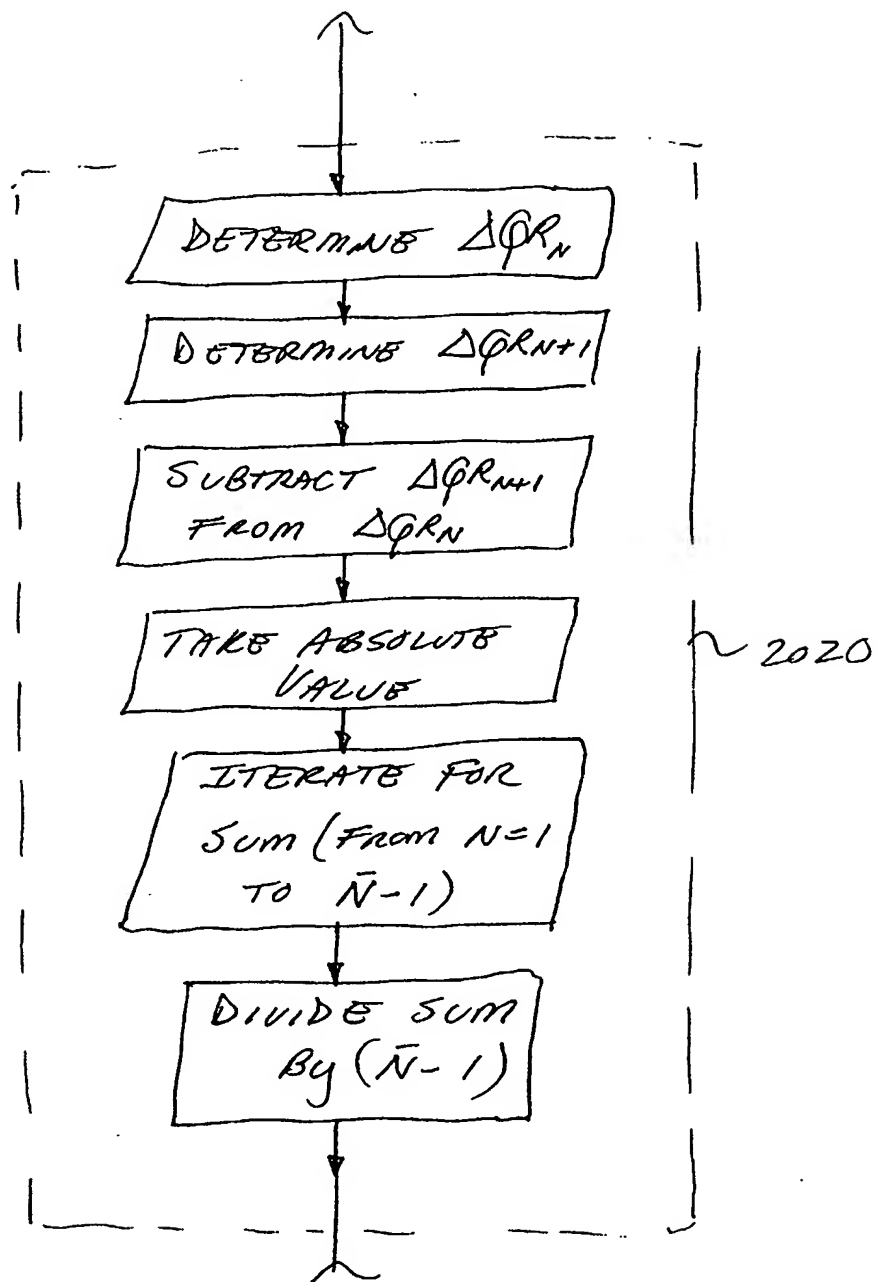 DETERMINE ΔφR_N
DETERMINE ΔφR_N+1
SUBTRACT ΔφR_N+1
FROM ΔφR_N
TAKE ABSOLUTE
VALUE
ITERATE FOR
SUM (FROM N=1
TO N̄-1)
2020
DIVIDE SUM
By (N̄-1)